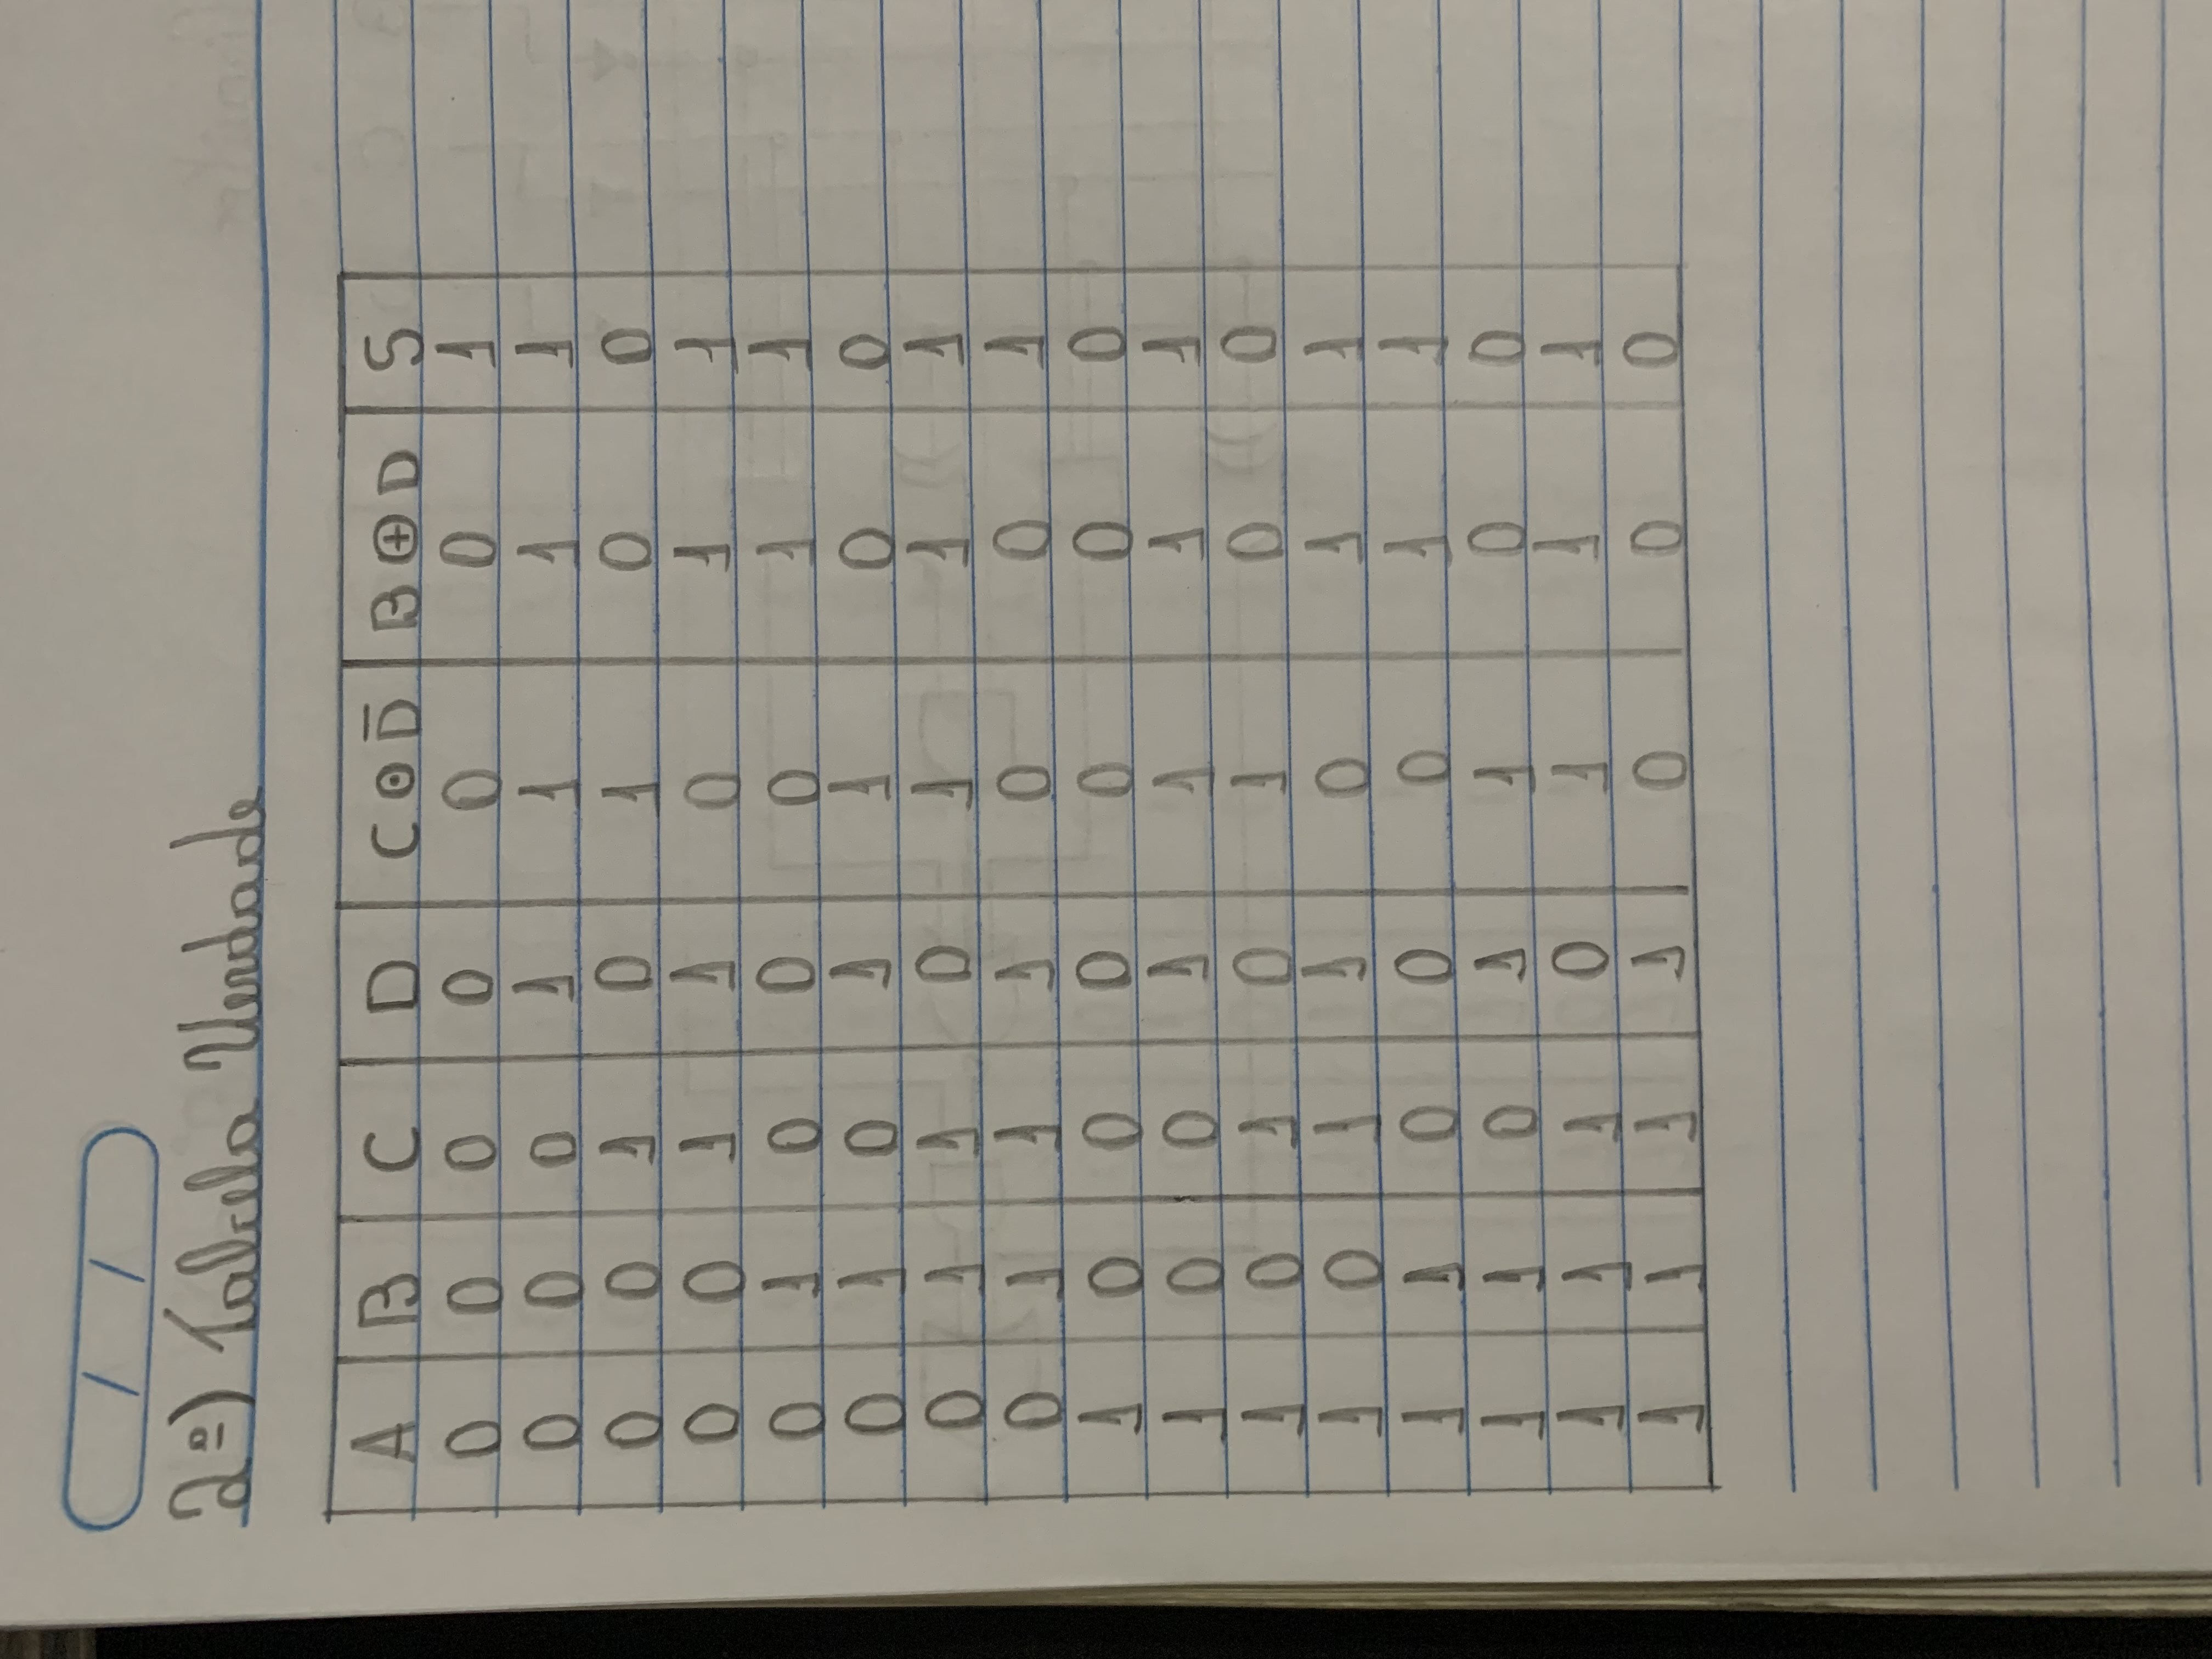 / /
2º) Tabela Verdade
A B C D C ⊙ D̅ B ⊕ D S
0 0 0 0 0 0 1
0 0 0 1 1 1 1
0 0 1 0 1 0 0
0 0 1 1 0 1 1
0 1 0 0 0 1 1
0 1 0 1 1 0 0
0 1 1 0 1 1 1
0 1 1 1 0 0 1
1 0 0 0 0 0 0
1 0 0 1 1 1 1
1 0 1 0 1 0 0
1 0 1 1 0 1 1
1 1 0 0 0 1 1
1 1 0 1 1 0 0
1 1 1 0 1 1 1
1 1 1 1 0 0 0